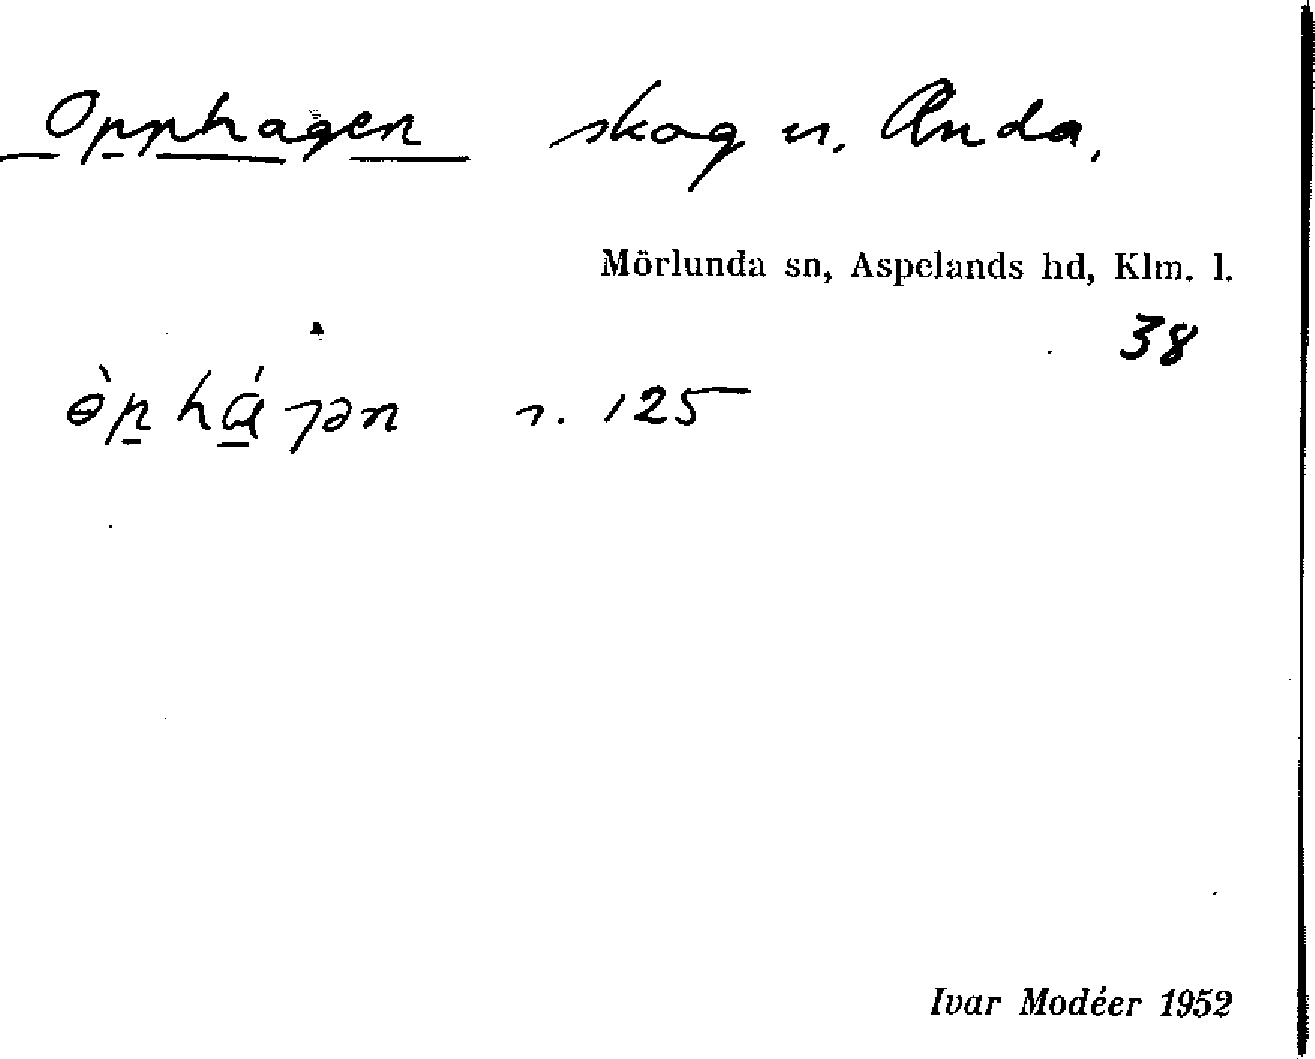 Opphagen skog u. Ånda,
Mörlunda sn, Aspelands hd, Klm. l.
38
ɵ̀p̲ há̲ɣən s. 125
Ivar Modéer 1952